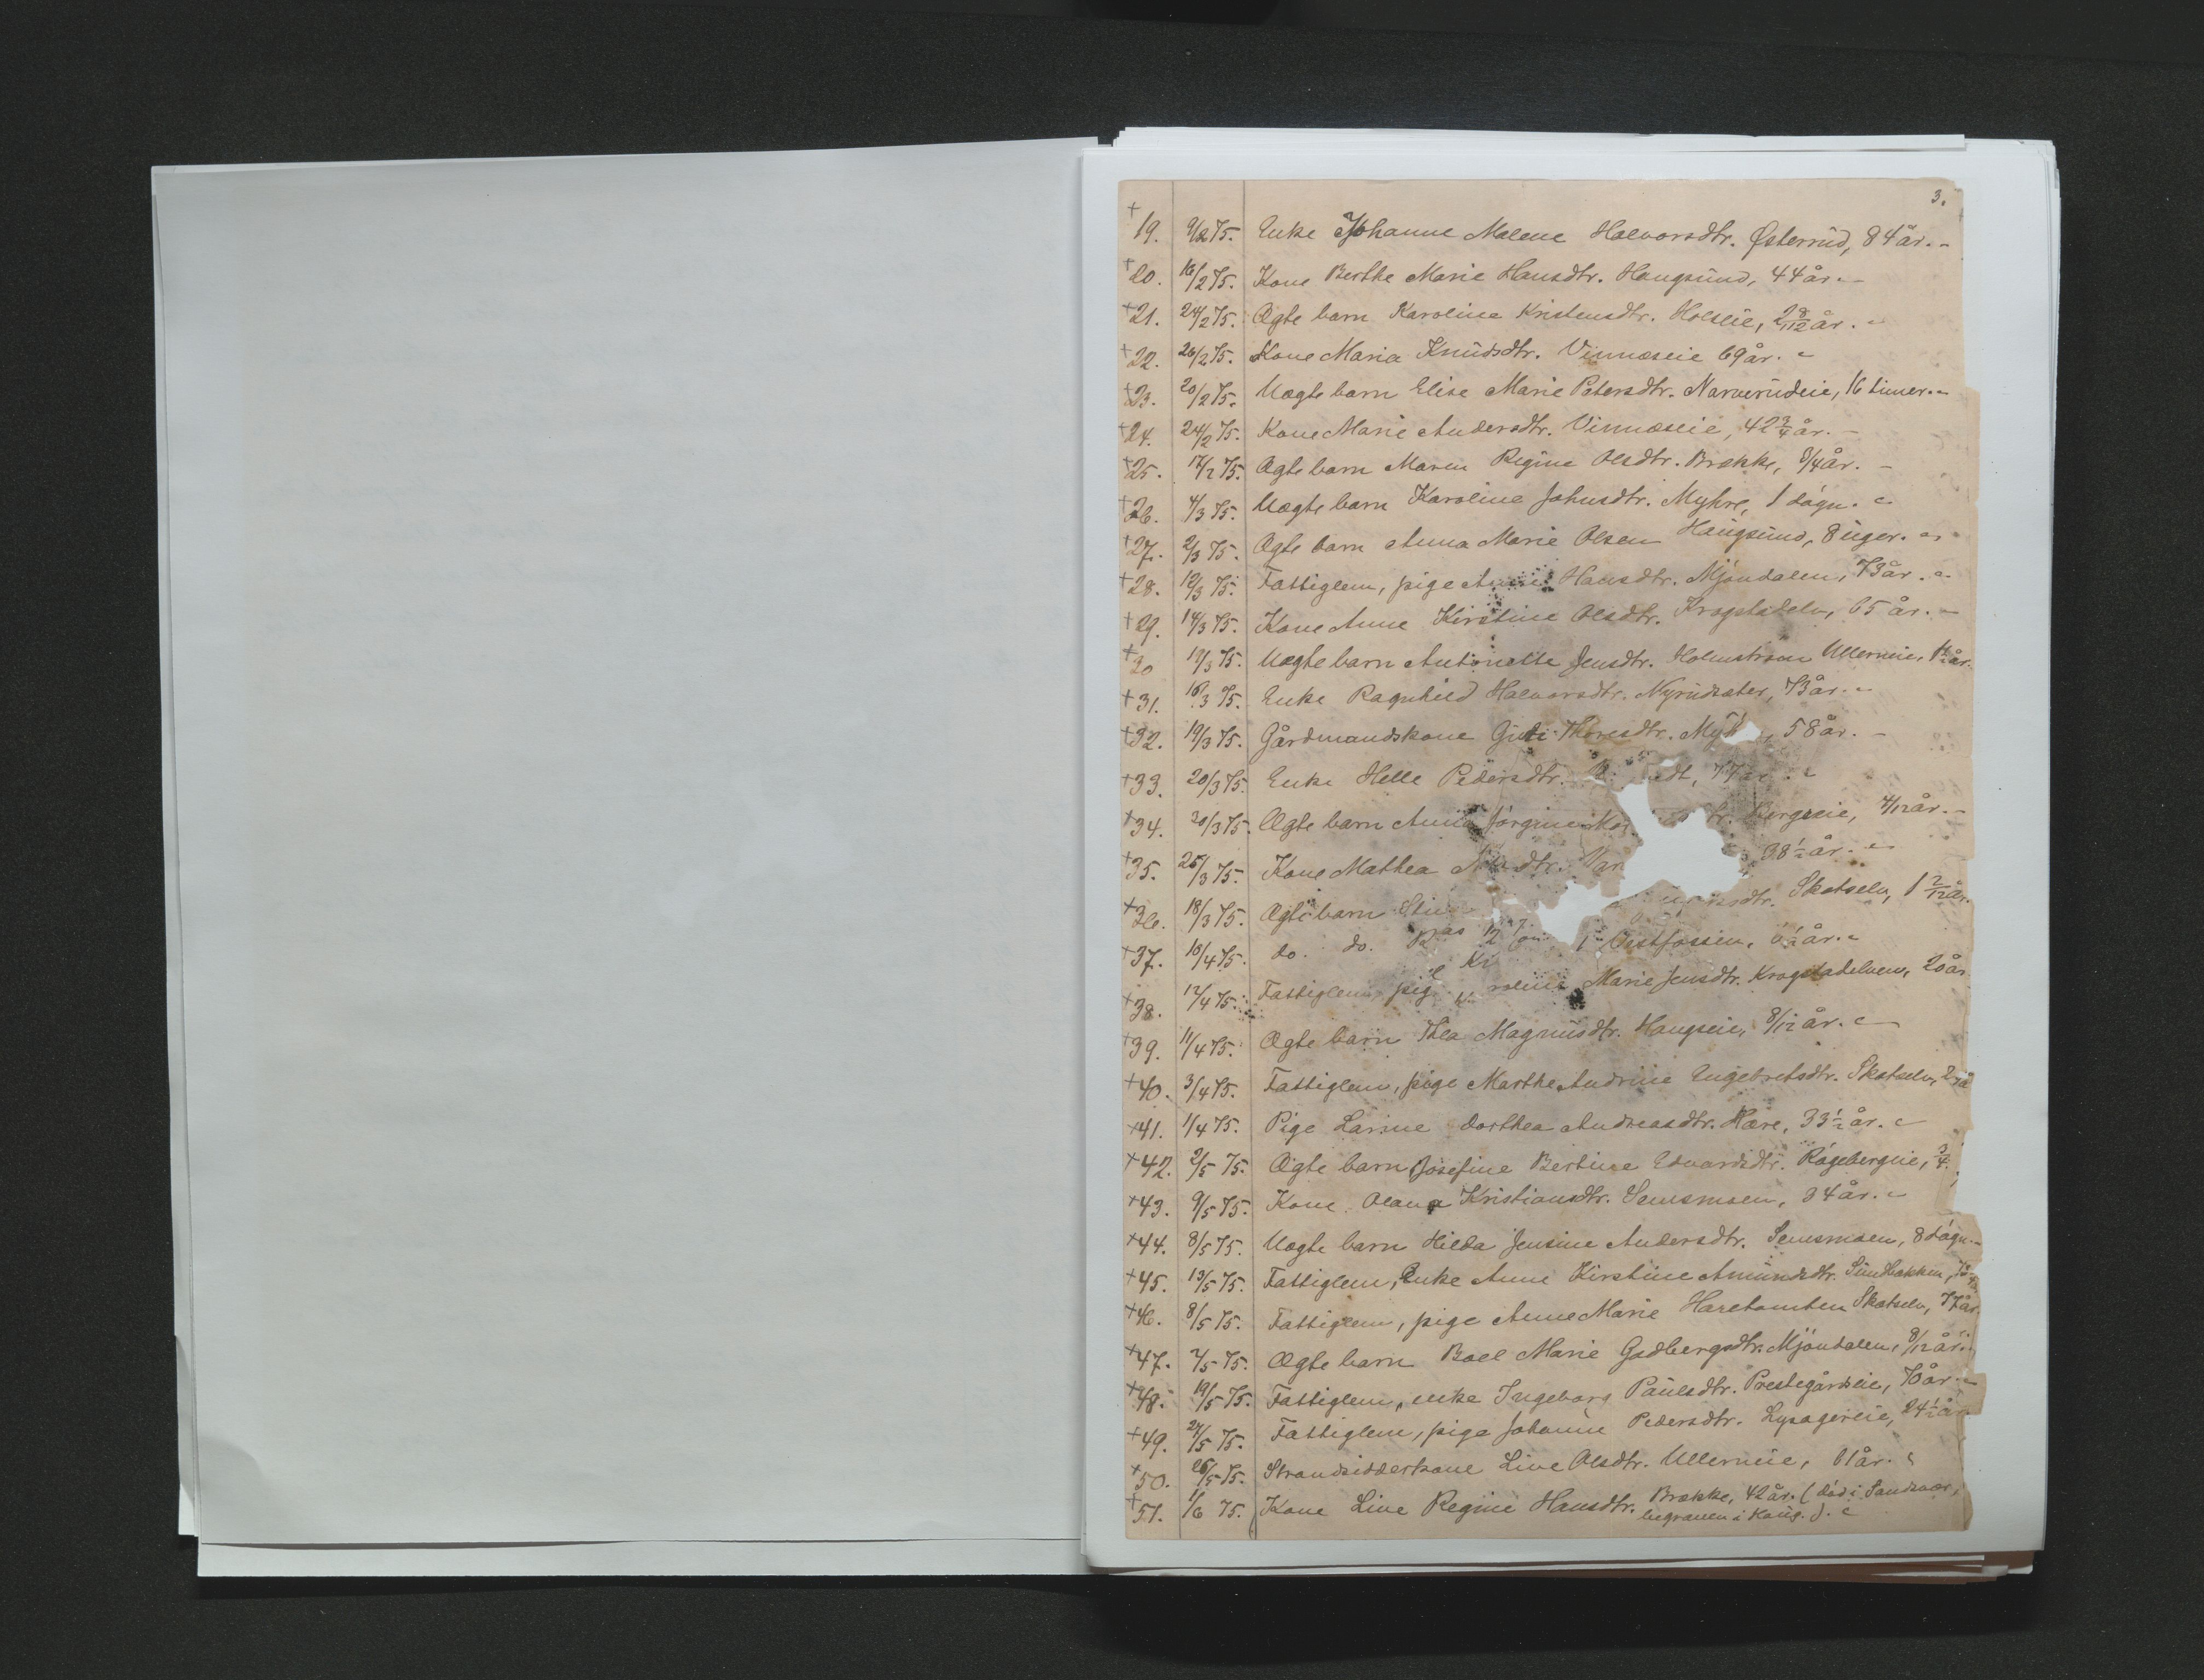 3.
+ 19. 9/2 75. Enke Johanne Malene Halvorsdtr. Østerud, 84 år. -
+ 20. 16/2 75. Kone Berthe Marie Hansdtr. Hougsund, 44 år. -
+ 21. 24/2 75. Ægte barn Karoline Kristensdtr. Holseie, 2 8/12 år. -
+ 22. 26/2 75. Kone Maria Knudsdtr. Vinnæseie 69 år. -
+ 23. 20/2 75. Uægte barn Elise Marie Petersdtr. Narverudeie, 16 timer. -
+ 24. 24/2 75. Kone Marie Andersdtr. Vinnæseie, 42 3/4 år. -
+ 25. 17/2 75. Ægte barn Maren Regine Olsdtr. Brække, 3/4 år. -
+ 26. 4/3 75. Uægte barn Karoline Johnsdtr. Myhre, 1 døgn. -
+ 27. 2/3 75. Ægte barn Anna Marie Olsen Haugsund, 8 uger. -
+ 28. 12/3 75. Fattiglem, pige Hansdtr. Mjøndalen, 73 år. -
+ 29. 14/3 75. Kone Anne Kirstine Olsdtr. Krogstadelv, 65 år. -
+ 30 19/3 75. Uægte barn Antonette Jensdtr. Holmstrøm Ullerneie, 1 1/2 år.
+ 31. 16/3 75. Enke Ragnhild Halvorsdtr. Nyrudsæter, 73 år. -
+ 32. 19/3 75. Gårdmandskone Thoresdtr. 58 år. -
+ 33. 20/3 75. Enke Helle Pedersdtr. 77 år. -
+ 34. 20/3 75. Ægte barn Anna Jørgine Bergseie, 4/12 år. -
+ 35. 25/3 75. Kone Mathea 38 1/2 år. -
+ 36. 18/3 75. Ægte barn Skotselv, 1 2/12 år.
+ 37. 10/4 75. do. do. Vestfossen, 6 1/2 år. -
+ 38. 12/4 75. Fattiglem, pige Marie Jensdtr. Krogstadelven, 20 år
+ 39. 11/4 75. Ægte barn Thea Magnusdtr. Haugseie, 8/12 år. -
+ 40. 3/4 75. Fattiglem, pige Marthe Andrine Engebretsdtr. Skotselv,
+ 41. 1/4 75. Pige Larine Dorthea Andreasdtr. Hore, 33 1/2 år. -
+ 42. 2/5 75. Ægte barn Josefine Bertine Edvardsdtr. Røgebergeie, 3/4
+ 43. 9/5 75. Kone Olava Kristiansdtr. Semsmoen, 34 år. -
+ 44. 8/5 75. Uægte barn Hilda Jensine Andersdtr. Semsmoen, 8 døgn. -
+ 45. 13/5 75. Fattiglem, Enke Anne Kirstine Amundsdtr. Sundbakken,
+ 46. 8/5 75. Fattiglem, pige Anne Marie Haretomten Skotselv, 77 år.
+ 47. 2/5 75. Ægte barn Boel Marie Gadbergsdtr. Mjøndalen, 8/12 år.
+ 48. 19/5 75. Fattiglem, enke Ingeborg Paulsdtr. Prestegårdseie, 70 år. -
+ 49. 27/5 75. Fattiglem, pige Johanne Pedersdtr. Lysagereie, 24 1/2 år.
+ 50. 26/5 75. Strandsidderkone Live Olsdtr. Ullerneie, 61 år. -
+ 51. 1/6 75. Kone Live Regine Hansdtr. Brække, 42 år. (død i Sandsvær,
begraven i Haug.). -